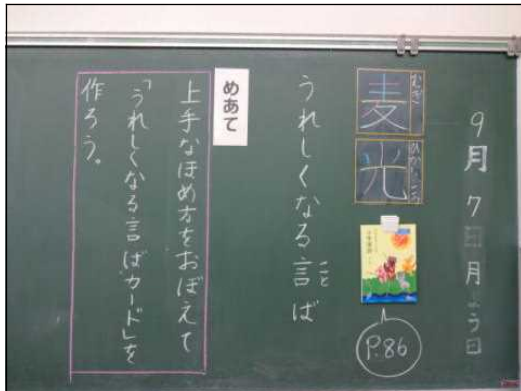 9月7日月よう日
むぎ
麦
光
P.86
こと
うれしくなる言ば
めあて
上手なほめ方をおぼえて
「うれしくなる言ばカード」を
作ろう。